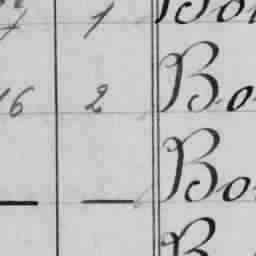 1 Bo
16 2 Bo
— — Bo
B